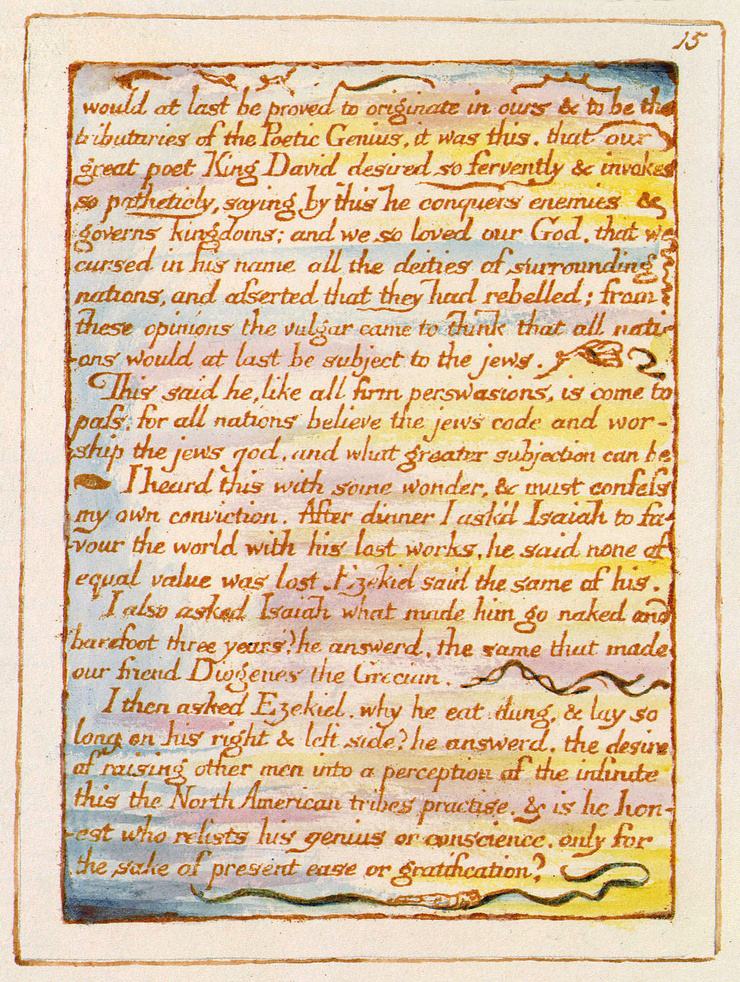 15
would at last be proved to originate in ours & to be the
tributaries of the Poetic Genius, it was this. that our
great poet King David desired so fervently & invokes
so patheticly, saying by this he conquers enemies &
governs kingdoms; and we so loved our God. that we
cursed in his name all the deities of surrounding
nations, and asserted that they had rebelled; from
these opinions the vulgar came to think that all nati-
-ons would at last be subject to the jews.
This said he, like all firm perswasions, is come to
pass; for all nations believe the jews code and wor-
-ship the jews god, and what greater subjection can be
I heard this with some wonder, & must confess
my own conviction. After dinner I ask'd Isaiah to fa-
-vour the world with his lost works, he said none of
equal value was lost. Ezekiel said the same of his.
I also asked Isaiah what made him go naked and
barefoot three years? he answerd, the same that made
our friend Diogenes the Grecian.
I then asked Ezekiel. why he eat dung, & lay so
long on his right & left side? he answerd. the desire
of raising other men into a perception of the infinite
this the North American tribes practise. & is he hon-
-est who resists his genius or conscience. only for
the sake of present ease or gratification?